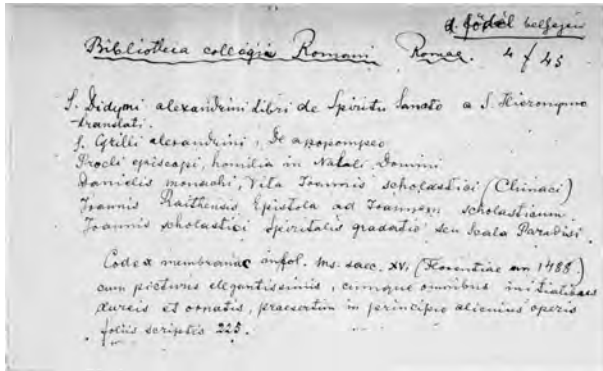 d. födél belsején
Bibliotheca collegii Romani Romae. 4 f 45
S. Didymi alexandrini libri de Spiritu Sancto a S. Hieronymo
translati.
S. Cyrilli alexandrini, De apopompeo
Procli episcopi, homilia in Natali Domini
Danielis monachi, Vita Joannis scholastici (Chinaci)
Joannis Raithensis Epistola ad Joannem scholasticum
Joannis scholastici Spiritalis gradatio seu Scala Paradisi.
Codex membranac fol. ms. saec. XVI (Florentiae an 1488.)
cum picturis elegantissimis, cumque omnibus initialibus
aureis et ornatis, praesertim in principio alicuius operis
foliis scriptis 225.